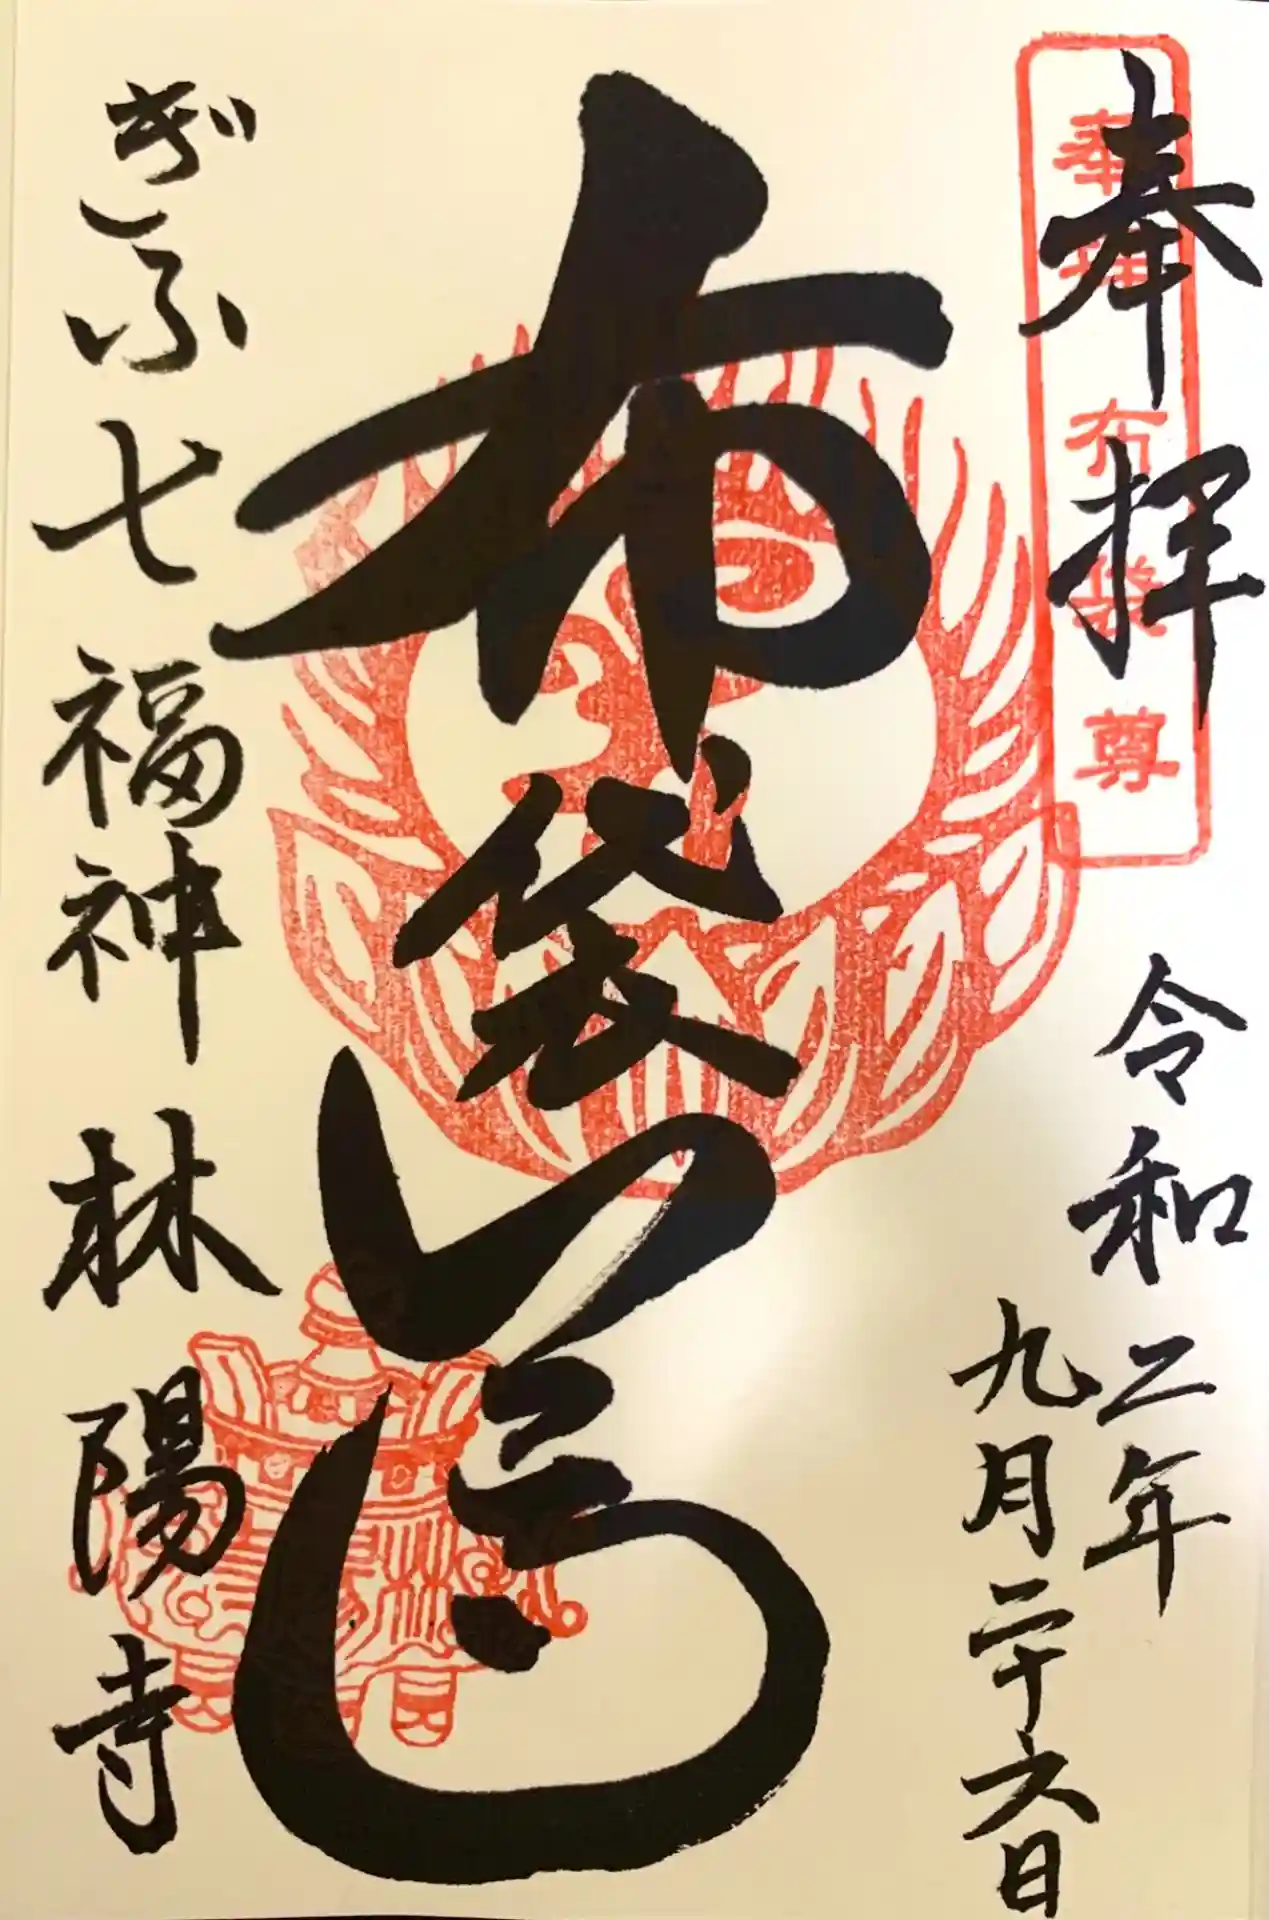 奉拝
奉拝 布袋尊
令和二年
九月二十六日
布袋尊
ぎふ七福神 林陽寺